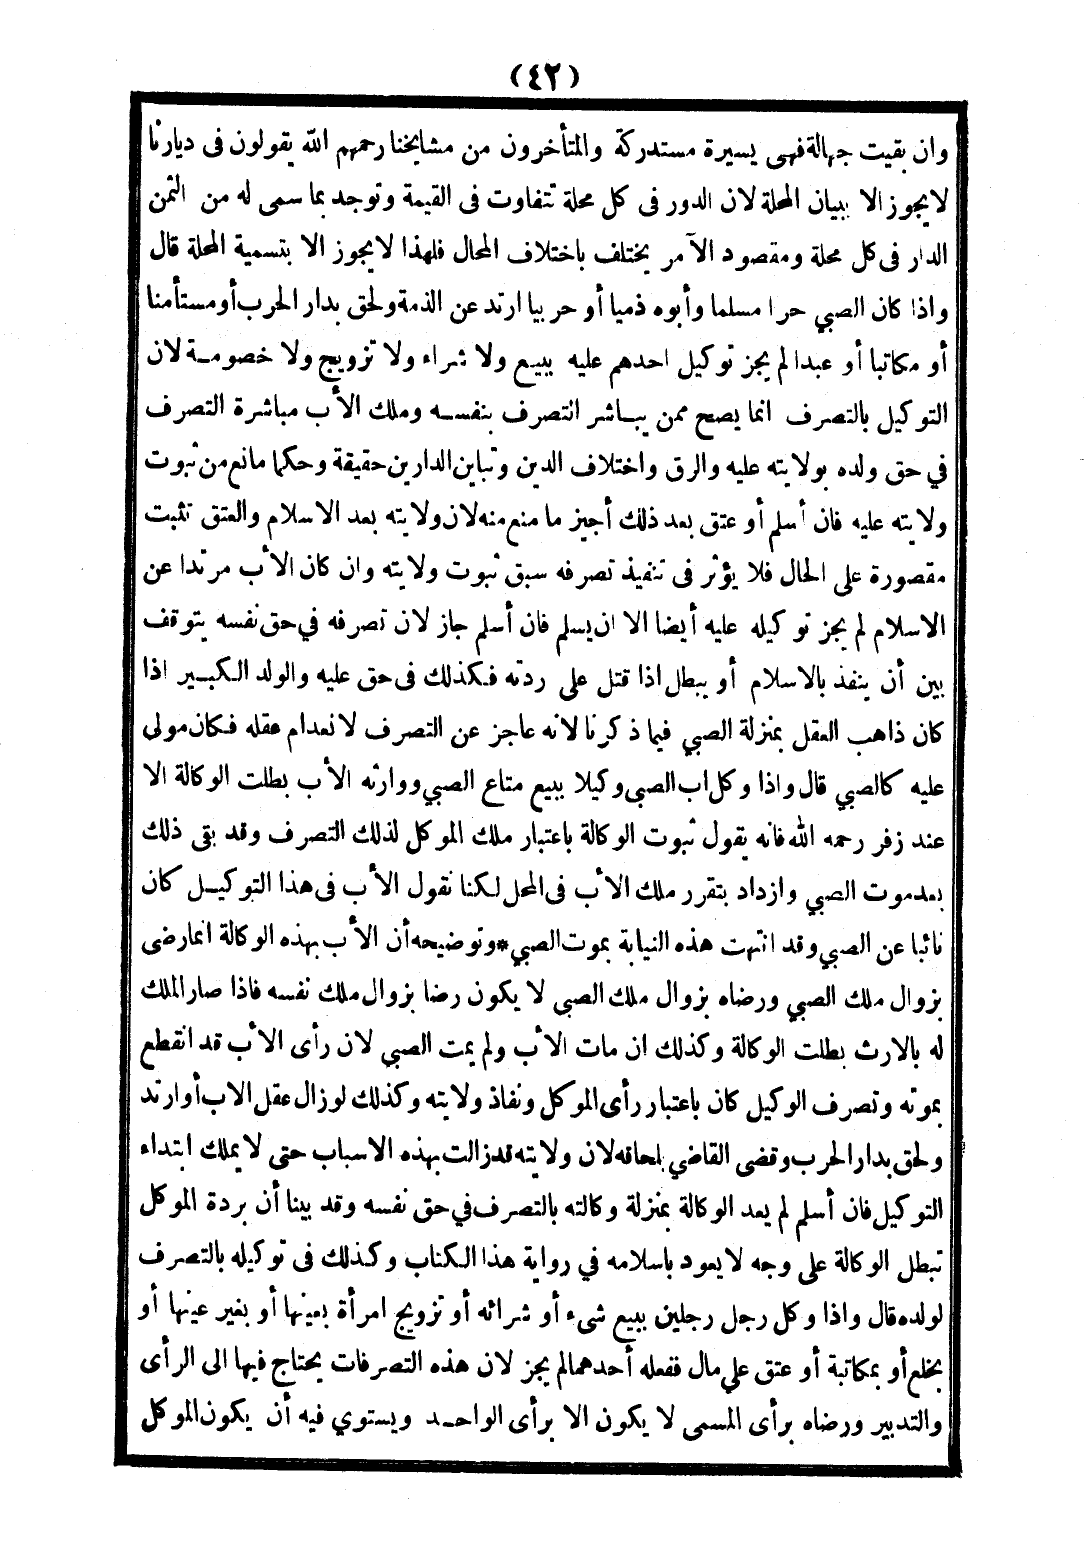 (٤٢)
وان بقيت جهالة فهى يسيرة مستدركة والمتأخرون من مشايخنا رحمهم الله يقولون فى ديارنا
لا يجوز الا ببيان المحلة لان الدور فى كل محلة تتفاوت فى القيمة وتوجد بما سمى له من الثمن
الدار فى كل محلة ومقصود الآمر يختلف باختلاف المحال فلهذا لا يجوز الا بتسمية المحلة قال
واذا كان الصبي حرا مسلما وأبوه ذميا أو حربيا ارتد عن الذمة ولحق بدار الحرب أو مستأمنا
أو مكاتبا أو عبدا لم يجز توكيل احدهم عليه ببيع ولا شراء ولا تزويج ولا خصومة لان
التوكيل بالتصرف انما يصح ممن يباشر التصرف بنفسه وملك الأب مباشرة التصرف
في حق ولده بولايته عليه والرق واختلاف الدين وتباين الدارين حقيقة وحكما مانع من ثبوت
ولايته عليه فان أسلم أو عتق بعد ذلك أجيز ما منع منه لان ولايته بعد الاسلام والعتق تثبت
مقصورة على الحال فلا يؤثر فى تنفيذ تصرفه سبق ثبوت ولايته وان كان الأب مرتدا عن
الاسلام لم يجز توكيله عليه أيضا الا ان يسلم فان أسلم جاز لان تصرفه في حق نفسه يتوقف
بين أن ينفذ بالاسلام أو يبطل اذا قتل على ردته فكذلك فى حق عليه والولد الكبير اذا
كان ذاهب العقل بمنزلة الصبي فيما ذكرنا لانه عاجز عن التصرف لانعدام عقله فكان مولى
عليه كالصبي قال واذا وكل اب الصبى وكيلا ببيع متاع الصبي ووارثه الأب بطلت الوكالة الا
عند زفر رحمه الله فانه يقول ثبوت الوكالة باعتبار ملك الموكل لذلك التصرف وقد بقى ذلك
بعد موت الصبي وازداد بتقرر ملك الأب فى المحل لكنا نقول الأب فى هذا التوكيل كان
نائبا عن الصبي وقد انتهت هذه النيابة بموت الصبي*وتوضيحه أن الأب بهذه الوكالة انما رضى
بزوال ملك الصبي ورضاه بزوال ملك الصبى لا يكون رضا بزوال ملك نفسه فاذا صار الملك
له بالارث بطلت الوكالة وكذلك ان مات الأب ولم يمت الصبي لان رأى الأب قد انقطع
بموته وتصرف الوكيل كان باعتبار رأى الموكل ونفاذ ولايته وكذلك لو زال عقل الاب أو ارتد
ولحق بدار الحرب وقضى القاضي بلحاقه لان ولايته قد زالت بهذه الاسباب حتى لا يملك ابتداء
التوكيل فان أسلم لم يعد الوكالة بمنزلة وكالته بالتصرف في حق نفسه وقد بينا أن بردة الموكل
تبطل الوكالة على وجه لا يعود باسلامه في رواية هذا الكتاب وكذلك فى توكيله بالتصرف
لولده قال واذا وكل رجل رجلين ببيع شىء أو شرائه أو تزويج امرأة بعينها أو بغير عينها أو
بخلع أو بمكاتبة أو عتق على مال ففعله أحدهما لم يجز لان هذه التصرفات يحتاج فيها الى الرأى
والتدبير ورضاه برأى المسمى لا يكون الا برأى الواحد ويستوي فيه أن يكون الموكل